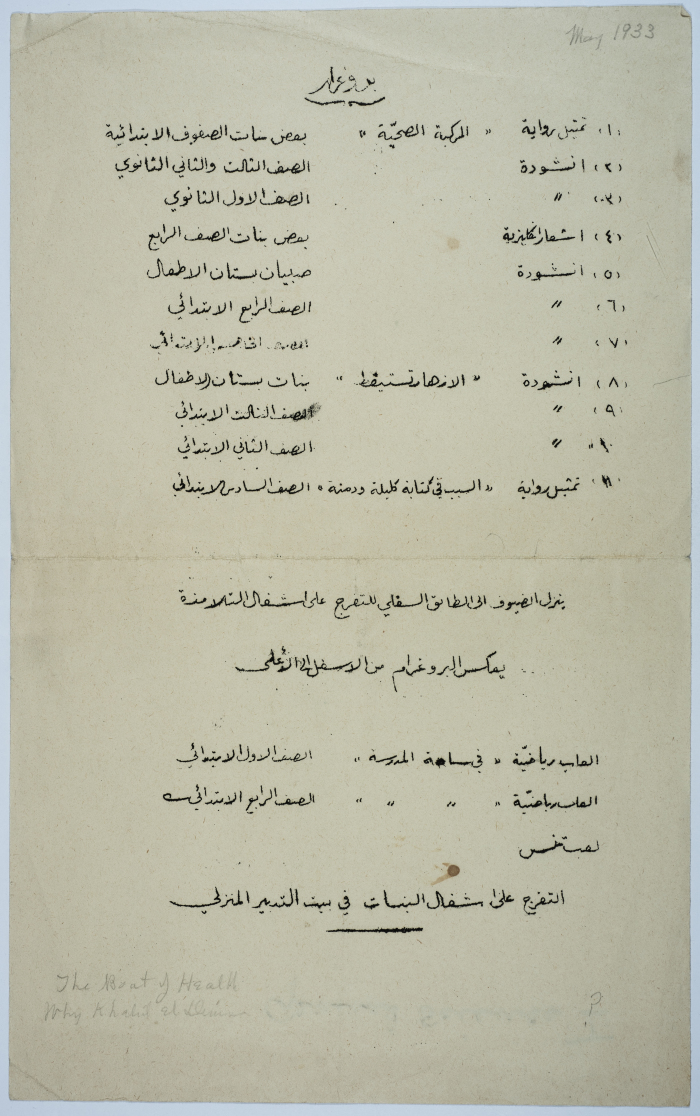 May 1933
بروغرام
(١) تمثيل رواية " المركبة الصحيّة " بعض بنات الصفوف الابتدائية
(٢) انشودة الصف الثالث والثاني الثانوي
(٣) " الصف الاول الثانوي
(٤) اشعار انكليزية بعض بنات الصف الرابع
(٥) انشودة صبيان بستان الاطفال
(٦) " الصف الرابع الابتدائي
(٧) " الصف الخامس الابتدائي
(٨) انشودة " الازهار تستيقظ " بنات بستان الاطفال
(٩) " الصف الثالث الابتدائي
(١٠) " الصف الثاني الابتدائي
(١١) تمثيل رواية " السبب في كتابة كليلة ودمنة " الصف السادس الابتدائي
ينزل الضيوف الى الطابق السفلي للتفرج على اشغال التلامذة
يعكس البروغرام من الاسفل الى الأعلى
العاب رياضيّة " في ساحة المدرسة " الصف الاول الابتدائي
العاب رياضيّة " " " " الصف الرابع الابتدائي
لعبة تنس
التفرج على اشغال البنات في بيت التدبير المنزلي
The Boat of Health
Why Khalil el
P